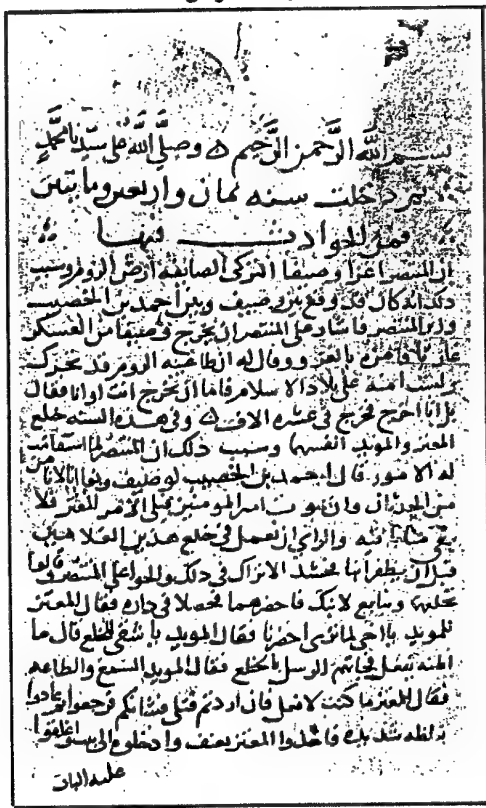 بسم الله الرحمن الرحيم ه وصلى الله على سيدنا محمد
ثم دخلت سنه ثمان واربعين ومايتين
فمن الحوادث فيها
ان المنتصر اغزا وصيفا التركى الصائفه ارض الروم وسبب
ذلك انه كان قد وقع بين وصيف وبين احمد بن الخصيب
وزير المنتصر فاشار على المنتصر ان يخرج وصيفا من العسكر
غازيا فامره بالغزو وقال له ان طاغيه الروم قد تحرك
ولست امنه على بلاد الاسلام فاما ان تخرج انت او انا فقال
بل انا اخرج فخرج في عشره الاف ه وفي هذه السنه خلع
المعتز والمويد انفسهما وسبب ذلك ان المنتصر لما استقامت
له الامور قال احمد بن الخصيب لوصيف وبغا انا لا نامن
من الحدثان وان يموت امير المومنين فيلى الامر المعتز فلا
يبقى منا باقيه والراي ان نعمل في خلع هذين الغلامين
قبل ان يظفرا بنا فجد الاتراك في ذلك والحوا على المنتصر وقالوا
تخلعهما ونبايع لابنك فاحضرهما فجعلا في دار فقال المعتز
للمويد يا اخي لم ترى احضرنا فقال المويد يا شقى للخلع قال ما
اظنه يفعل فجاتهم الرسل بالخلع فقال المويد السمع والطاعه
فقال المعتز ما كنت لافعل فان اردتم قتلى فشانكم فرجعوا ثم عادوا
بغلظه شديده فاخذوا المعتز بعنف وادخلوه الى بيت واغلقوا
عليه الباب